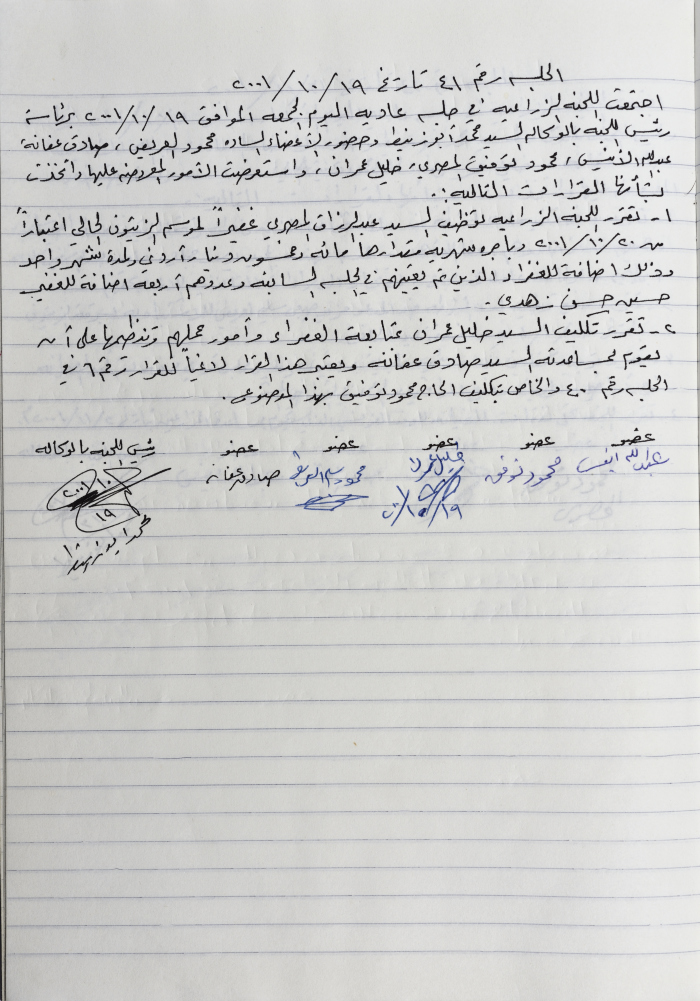 الجلسه رقم ٤١ تاريخ ١٩/١٠/٢٠٠١
اجتمعت اللجنه الزراعيه في جلسه عاديه اليوم الجمعه الموافق ١٩/١٠/٢٠٠١ برئاسة
رئيس اللجنه بالوكاله السيد محمد أبو زنيط وحضور الأعضاء الساده محمود العريض، صادق عفانة
عبدالله الأنيس، محمود توفيق المصري، خليل عمران، واستعرضت الأمور المعروضه عليها واتخذت
بشأنها القرارات التاليه:.
١- تقرر اللجنة الزراعيه توظيف السيد عبدالرزاق المصري غفيراً لموسم الزيتون الحالي اعتباراً
من ٢٠/١٠/٢٠٠١ وبأجره شهريه مقدارها مائه وعشرون دينار أردني ولمدة شهر واحد
وذلك اضافة للغفراء الذين تم تعيينهم في الجلسه السابقه وعددهم أربعه اضافة للغفير
حسين حسن زهدي.
٢- تقرر تكليف السيد خليل عمران بمتابعة الغفراء وأمور عملهم وتنظيمها على أن
يقوم بمساعدته السيد صادق عفانه ويعتبر هذا القرار لاغياً للقرار رقم ٦ في
الجلسه رقم ٤٠ والخاص بتكليف الحاج محمود توفيق بهذا الموضوع.
عضو عضو عضو عضو عضو رئيس اللجنه بالوكاله
عبدالله انيس محمود توفيق خليل عمران محمود صادق عفانه
١٩/١٠/٢٠٠١
١٩/١٠/٢٠٠١
محمد ابو زنيط